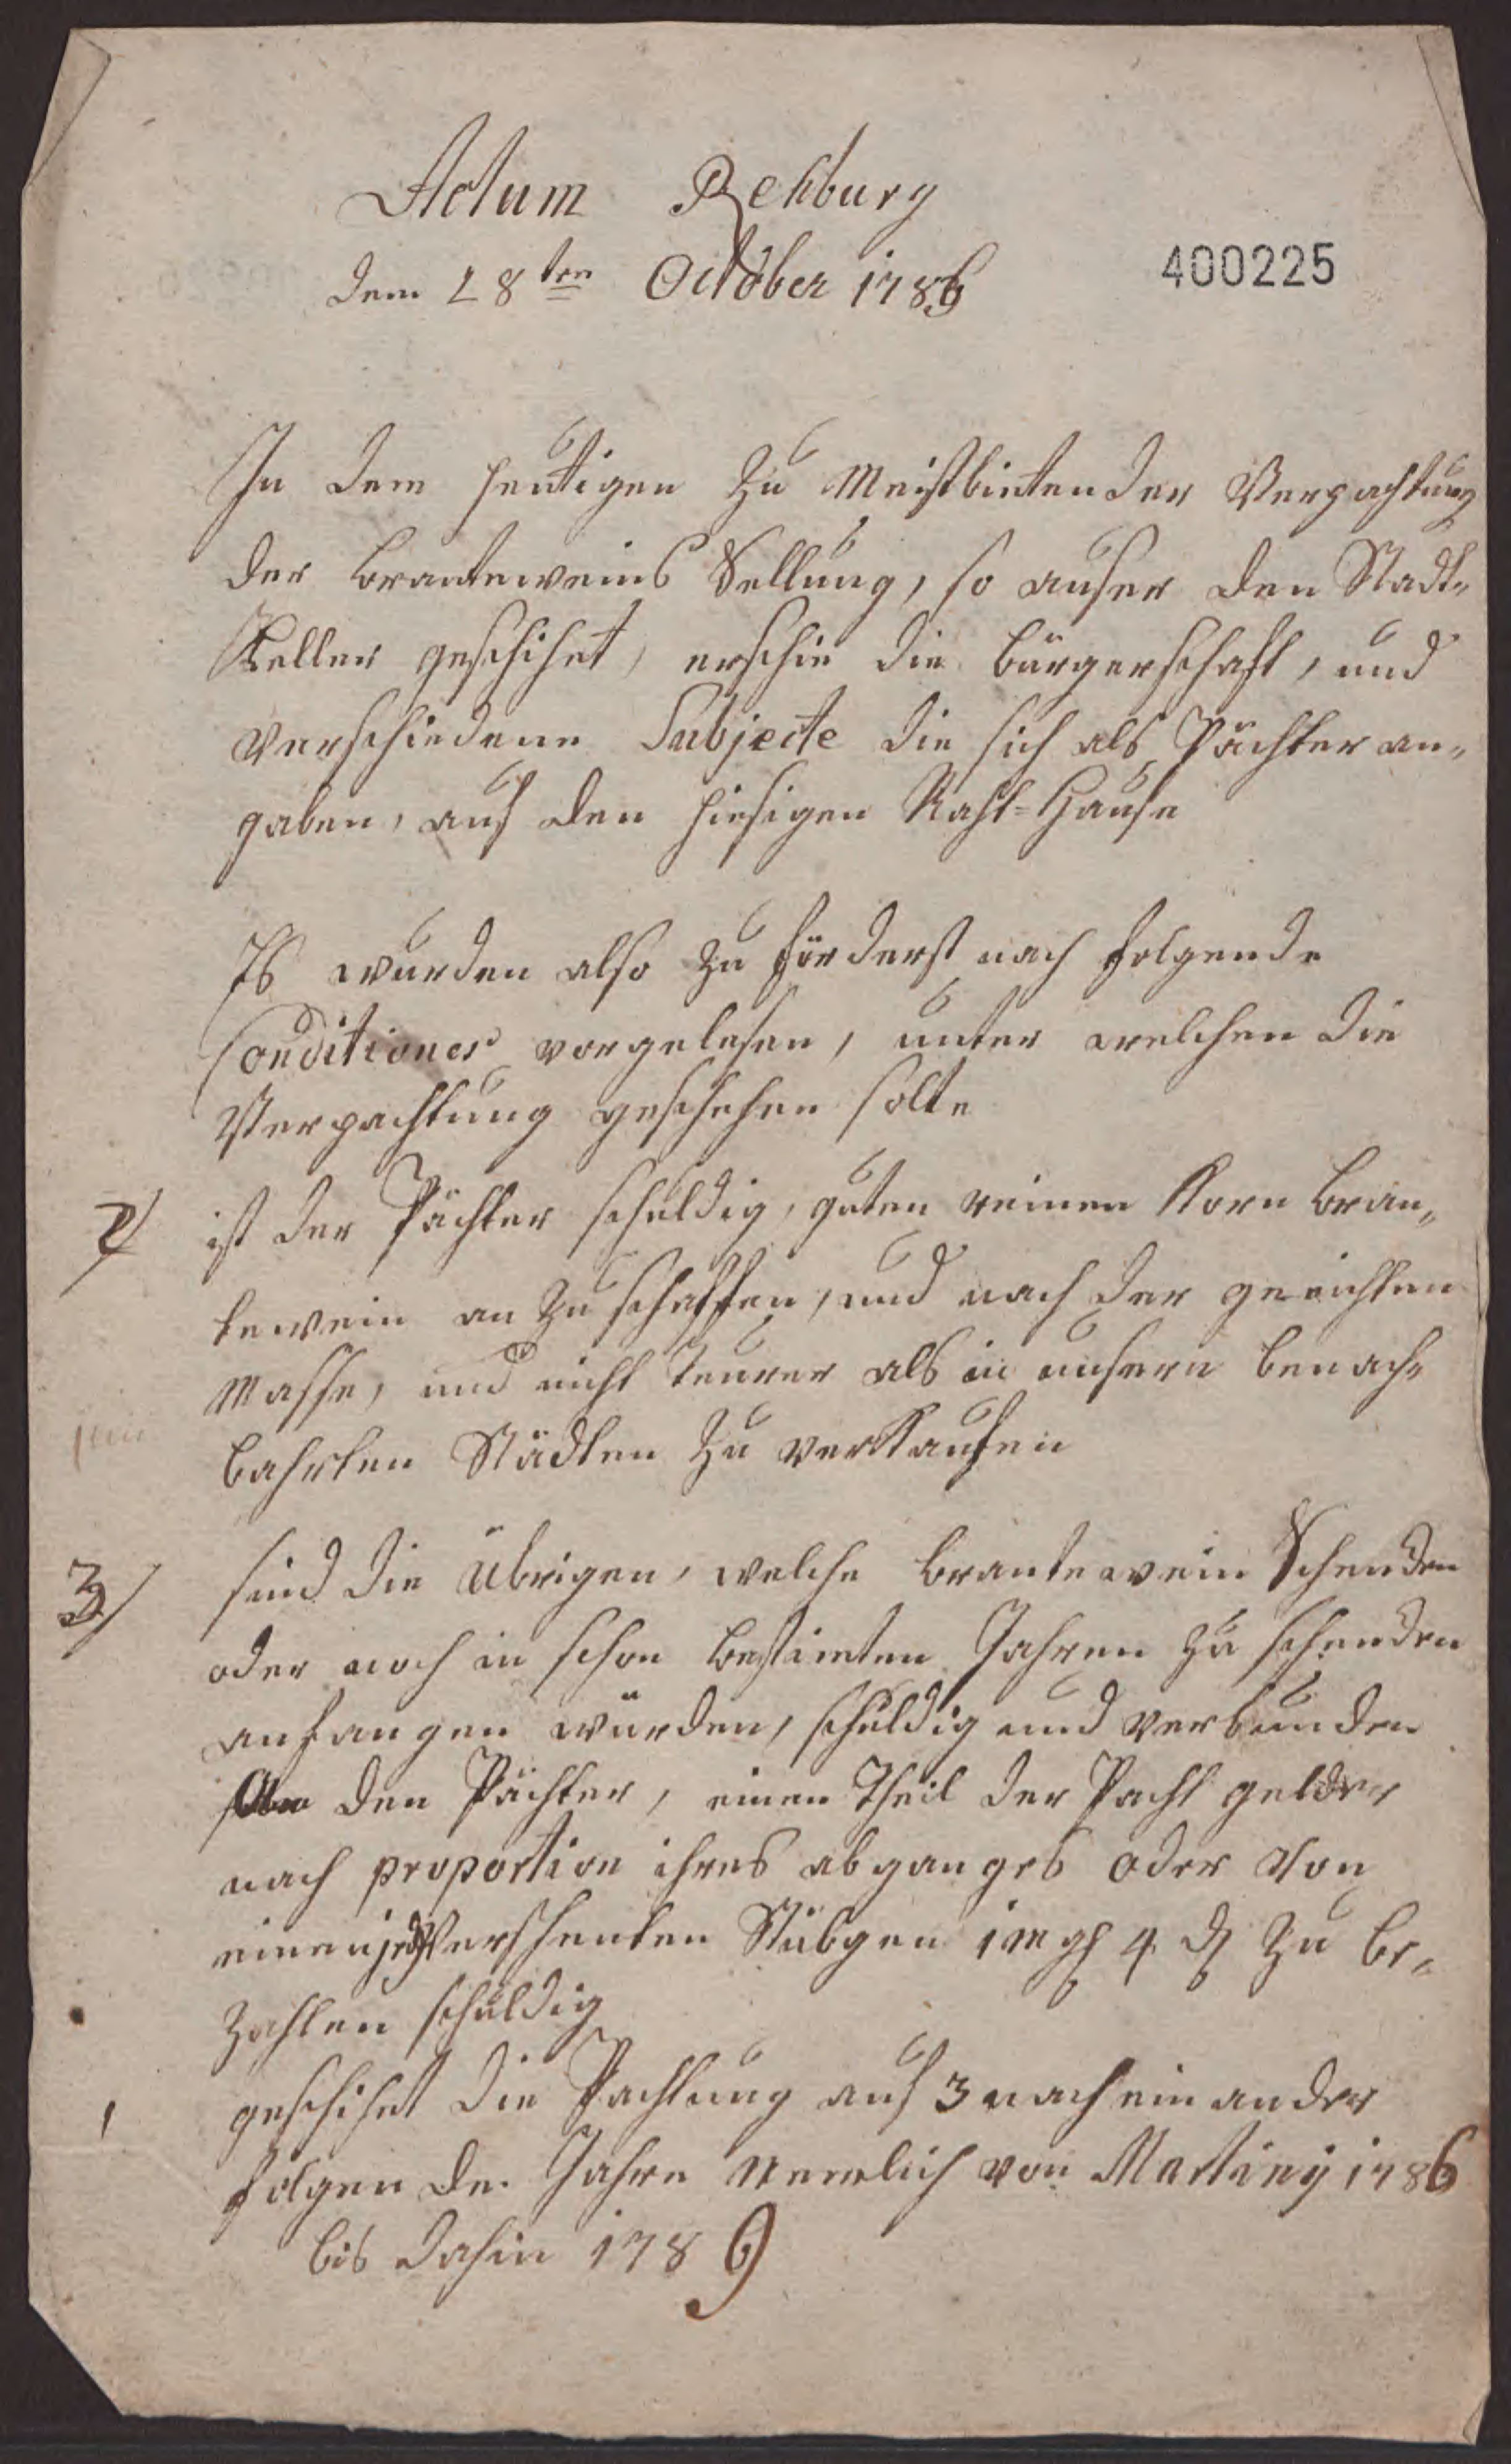 Actum Rehburg
dem 28ten October 1786
400225
In dem heutigen zu Meistbietender Verpachtung
der branteweins Sellung, so auser den Stadt-
Keller geschihet, erschie die bürgerschaft, und
verschiedene Subjecte die sich als Pächter an-
gaben, auf den hiesigen Raht-Hause
Es wurden also zu förderst nach folgende
Conditiones vorgelesen, unter welchen die
Verpachtung geschehen solte
2/ ist der Pächter schuldig, guten reinen Korn bran-
tewein an zu schaffen, und nach der geeichten
Masse, und nicht teurer als in unsern benach-
bahrten Städten zu verkaufen
3/ sind die übrigen, welche brantewein Schencken
oder noch in schon bestimten Jahren zu schencken
anfangen würden, schuldig und verbunden
den Pächter, einen Theil der Pacht gelder
nach proportion ihres abganges oder von
einen jed verschenkten Stübgen 1 mgl 4 d zu be-
zahlen schuldig
1 geschihet die Pachtung auf 3 nach ein ander
folgen de Jahre Nemlich von Martiny 1786
bis dahin 1789